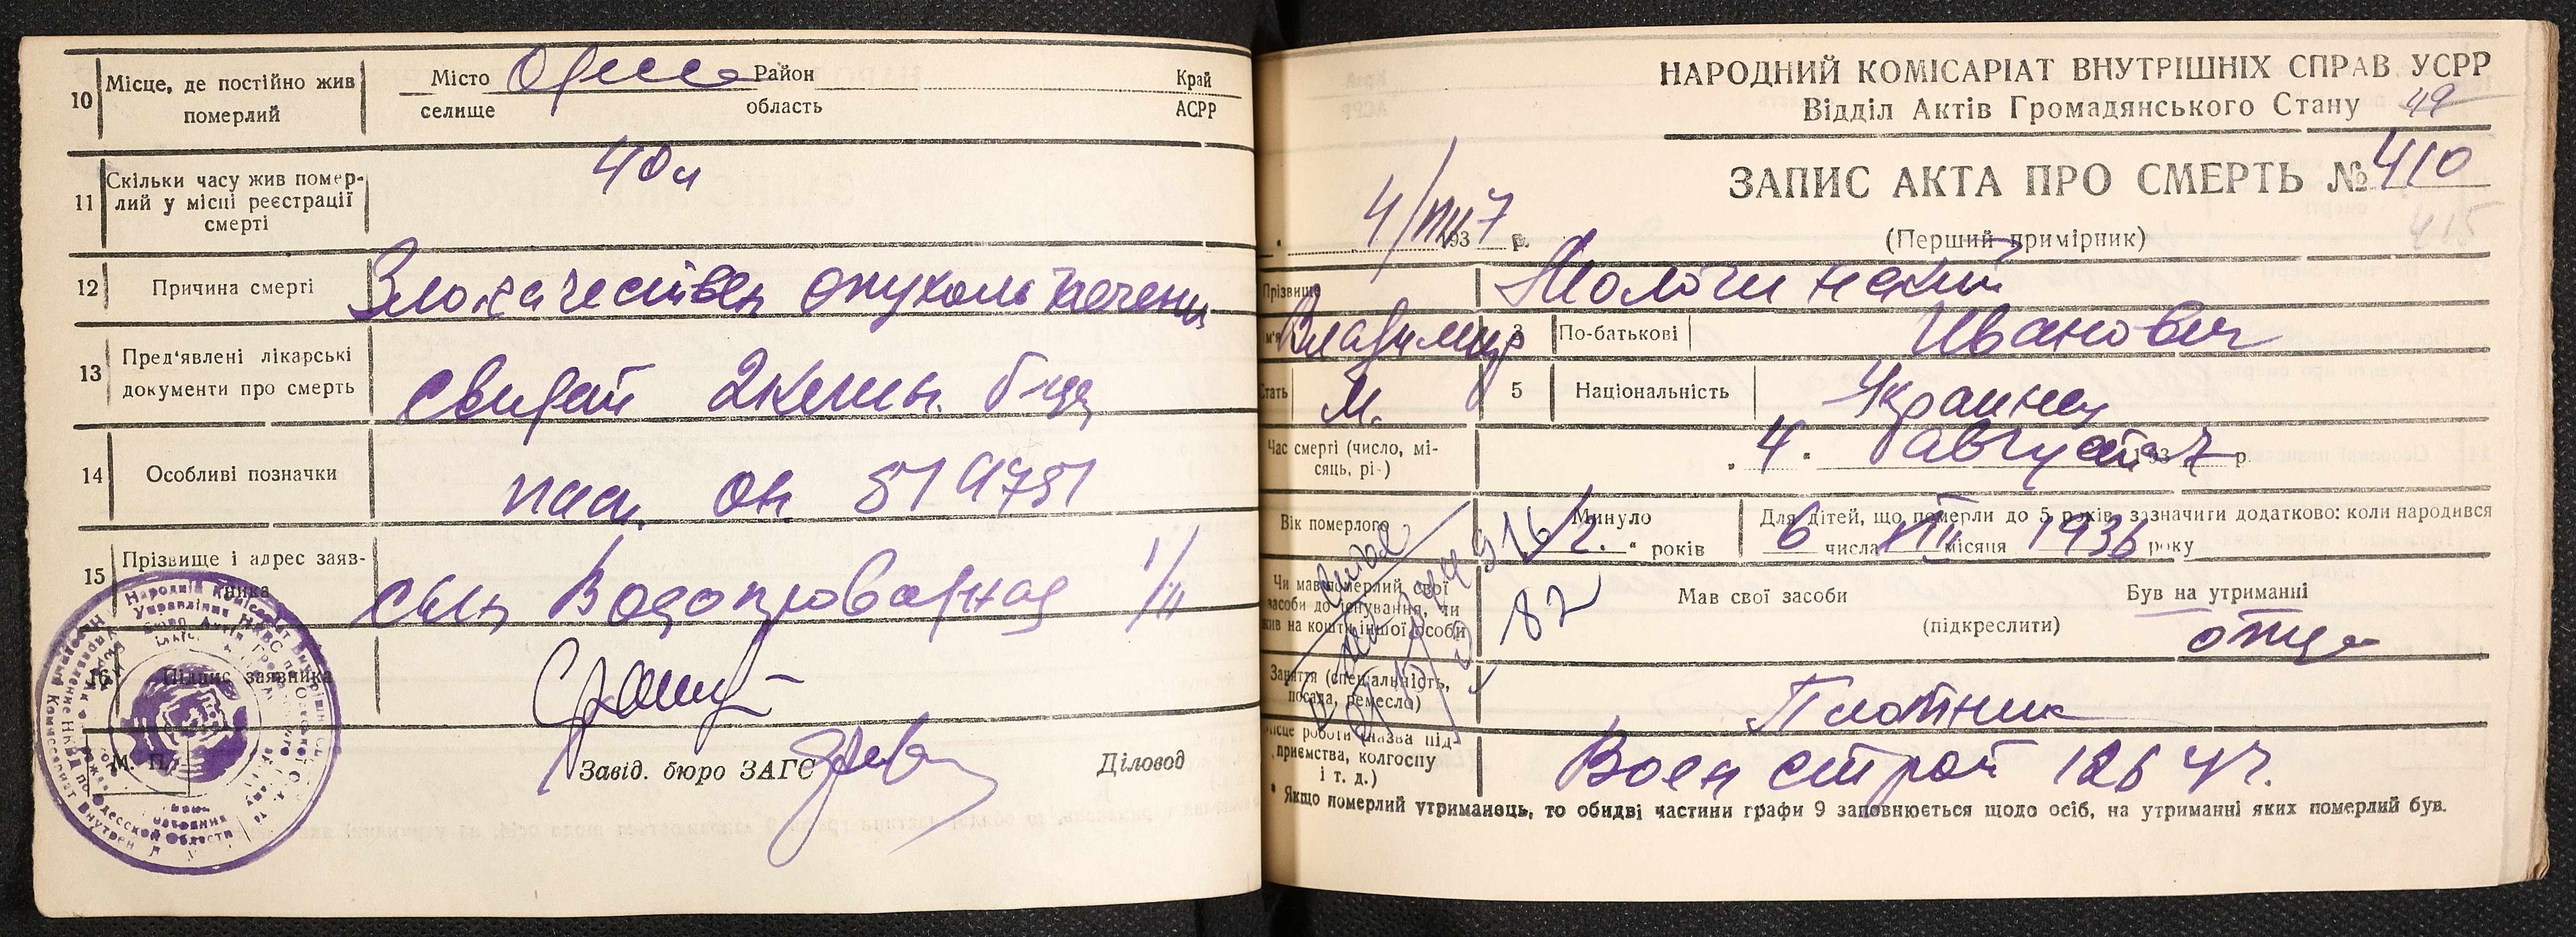 10 Місце, де постійно жив померлий
Місто селище Одесса Район область Край АСРР
11 Скільки часу жив помер-
лий у місці реєстрації
смерті
40 л
12 Причина смерті Злокачествен опухоль печени
13 Пред'явлені лікарські
документи про смерть
свидет 2 б-ца
14 Особливі позначки
пасп. 519751
15 Прізвище і адрес заяв-
ника
сын Водопроводная
16 Підпис заявника
М. П.
Завід. бюро ЗАГС Діловод
НАРОДНИЙ КОМІСАРІАТ ВНУТРІШНІХ СПРАВ УСРР
Відділ Актів Громадянського Стану 49
ЗАПИС АКТА ПРО СМЕРТЬ № 410
415
4/VIII 1937 р.
(Перший примірник)
Прізвище
Владимир 3 По-батькові Иванович
Стать М. 5 Національність Украинец
Час смерті (число, мі-
сяць, рі-)
4. август 1937 р.
Вік померлого Минуло років
Для дітей, що померли до 5 років, зазначити додатково: коли народився
6 числа VIII місяця 1936 року
Чи мав померлий свої
засоби до існування, чи
жив на кошти іншої особи
82
Мав свої засоби Був на утриманні
(підкреслити) отца
Заняття (спеціальність,
посада, ремесло)
Плотник
Місце роботи (назва під-
приємства, колгоспу
і т. д.)
Воен строй 126 уч.
* Якщо померлий утриманець, то обидві частини графи 9 заповнюється щодо осіб, на утриманні яких померлий був.